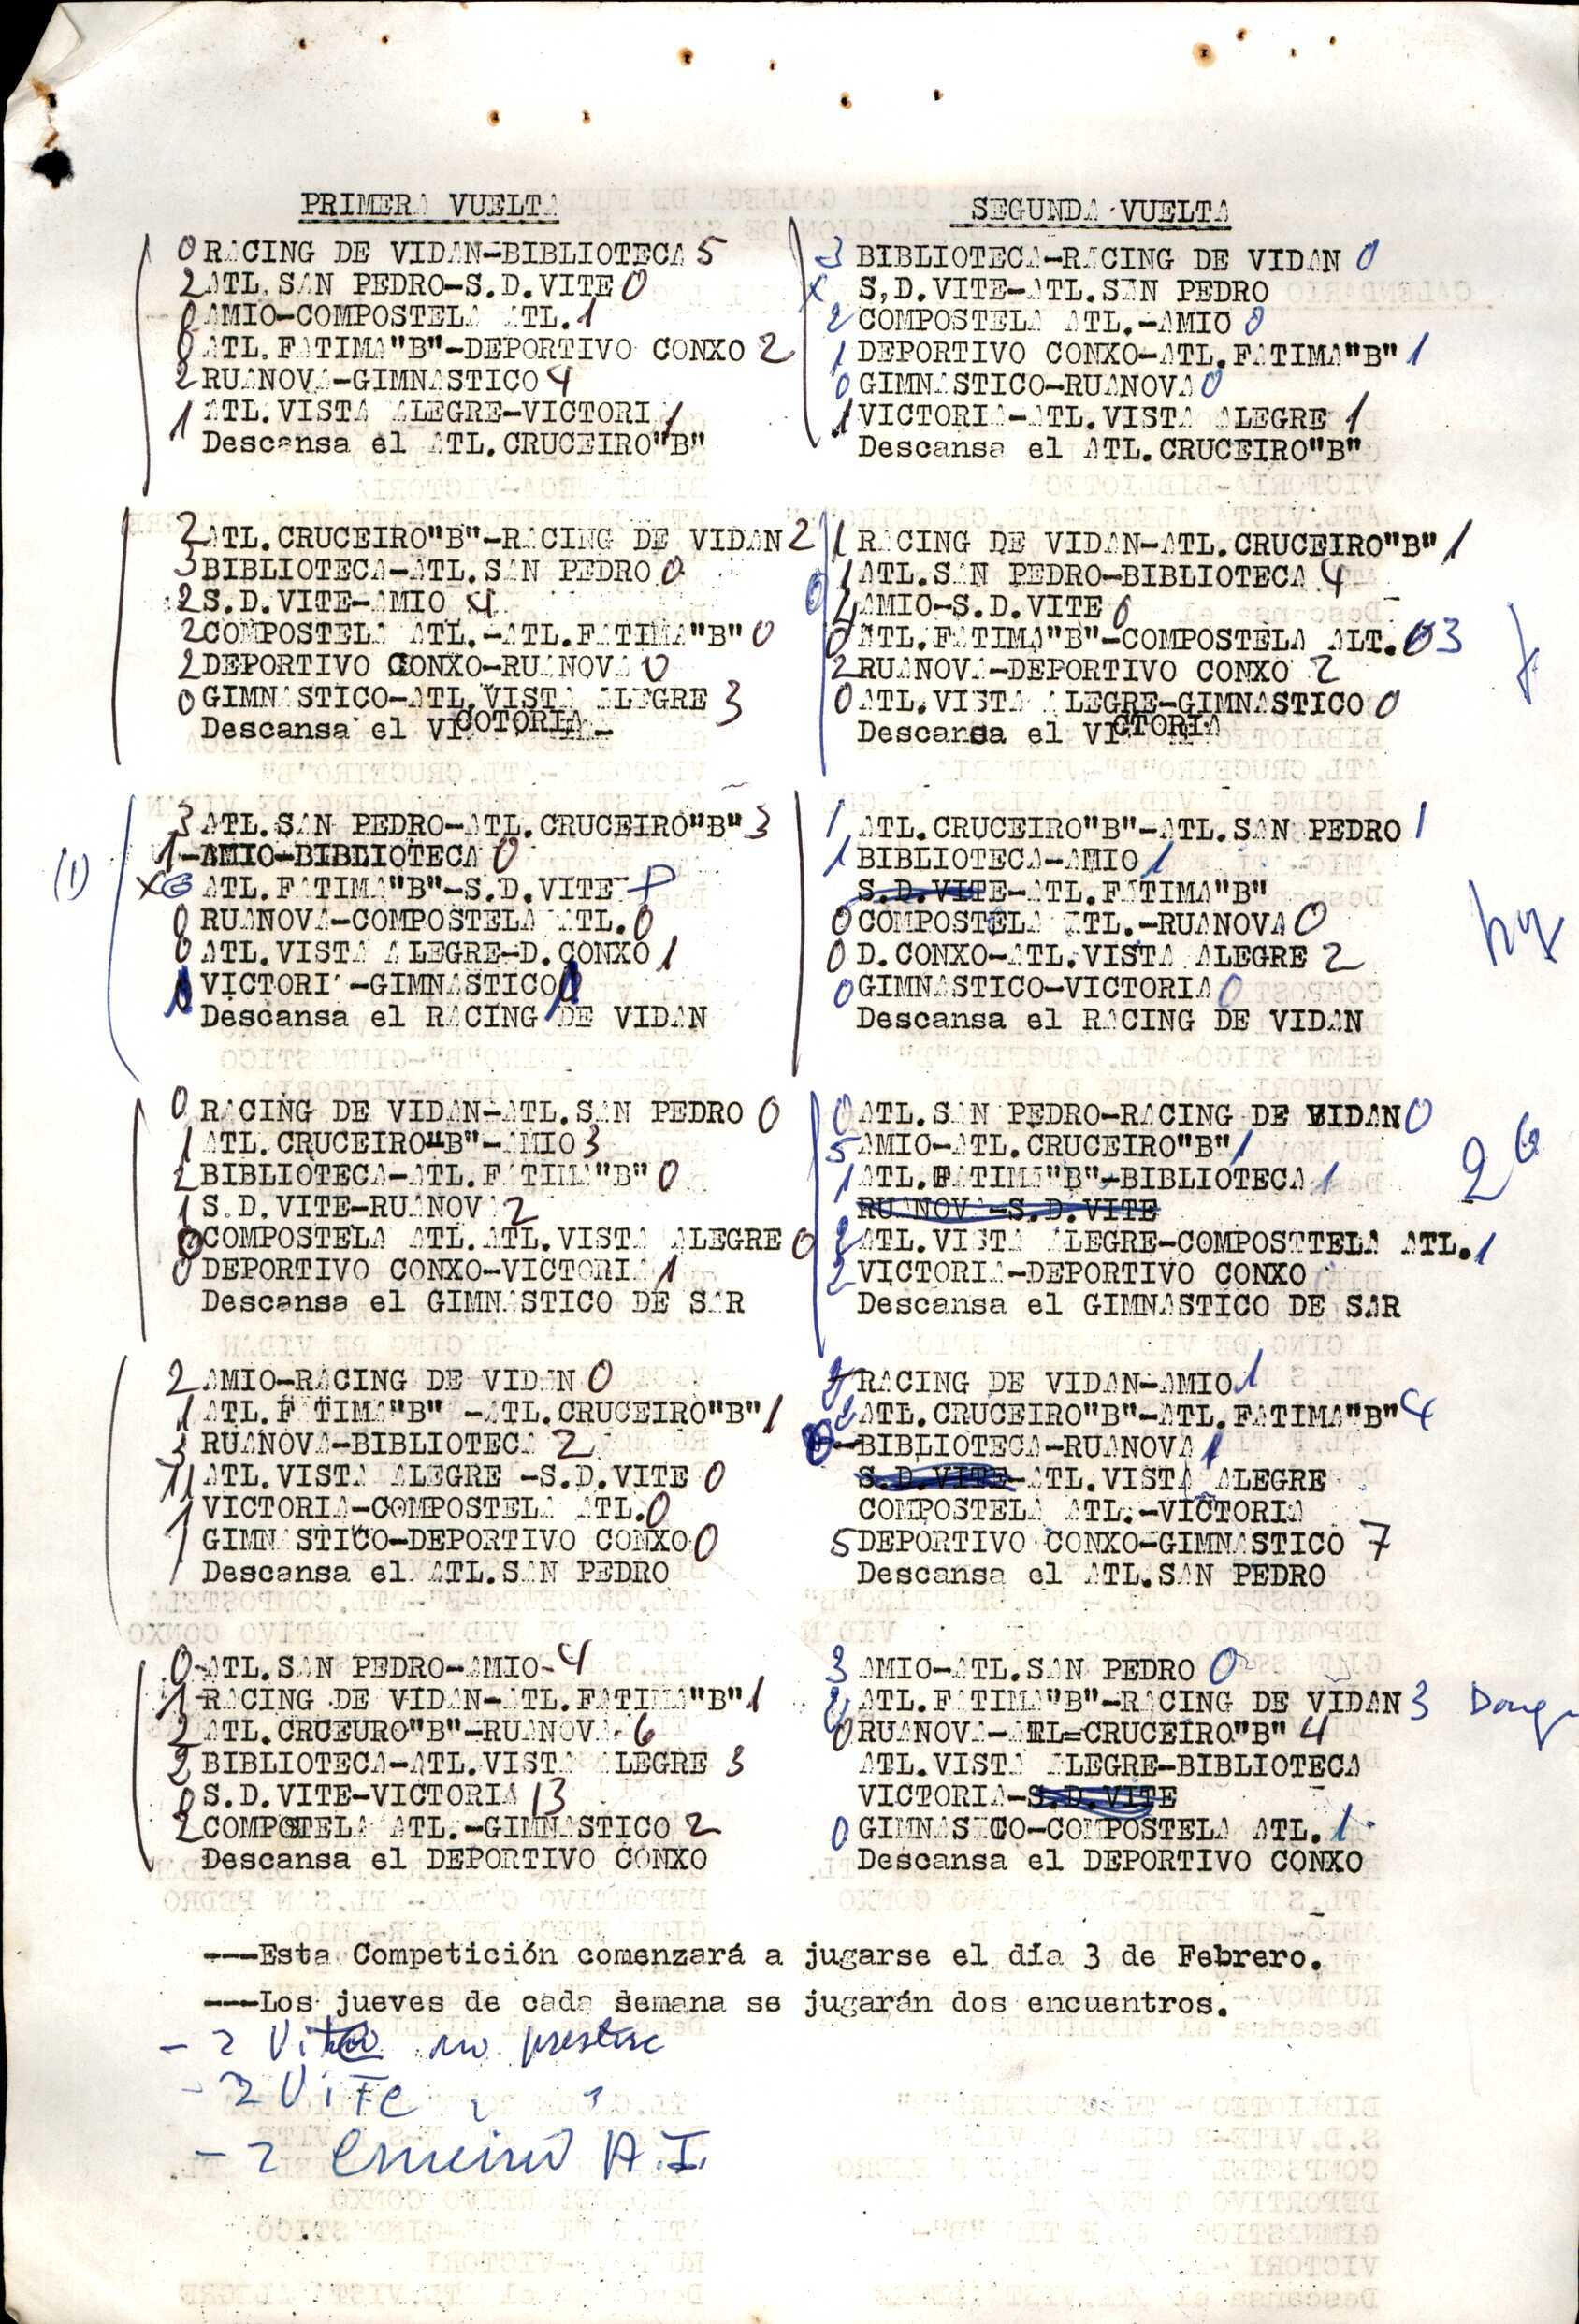 PRIMERA VUELTA
0 RACING DE VIDAN-BIBLIOTECA 5
2 ATL. SAN PEDRO-S.D.VITE 0
0 AMIO-COMPOSTELA ATL. 1
0 ATL.FATIMA"B"-DEPORTIVO CONXO 2
2 RUANOVA-GIMNASTICO 4
1 ATL.VISTA ALEGRE-VICTORI 1
Descansa el ATL.CRUCEIRO"B"
2 ATL.CRUCEIRO"B"-RACING DE VIDAN 2
3 BIBLIOTECA-ATL.SAN PEDRO 0
2 S.D.VITE-AMIO 4
2 COMPOSTELA ATL.-ATL.FATIMA"B" 0
2 DEPORTIVO CONXO-RUANOVA 0
0 GIMNASTICO-ATL.VISTA ALEGRE 3
Descansa el VICOTORIA
(1)
3 ATL.SAN PEDRO-ATL.CRUCEIRO"B" 3
1-AMIO-BIBLIOTECA 0
X ATL.FATIMA"B"-S.D.VITE P
0 RUANOVA-COMPOSTELA ATL. 0
0 ATL.VISTA ALEGRE-D.CONXO 1
VICTORI -GIMNASTICO
Descansa el RACING DE VIDAN
0 RACING DE VIDAN-ATL.SAN PEDRO 0
1 ATL.CRUCEIRO"B"-AMIO 3
2 BIBLIOTECA-ATL.FATIMA"B" 0
1 S.D.VITE-RUANOVA 2
0 COMPOSTELA ATL.ATL.VISTA ALEGRE 0
0 DEPORTIVO CONXO-VICTORIA 1
Descansa el GIMNASTICO DE SAR
2 AMIO-RACING DE VIDAN 0
1 ATL.FATIMA"B" -ATL.CRUCEIRO"B" 1
3 RUANOVA-BIBLIOTECA 2
11 ATL.VISTA ALEGRE -S.D.VITE 0
1 VICTORIA-COMPOSTELA ATL. 0
1 GIMNASTICO-DEPORTIVO CONXO 0
Descansa el ATL.SAN PEDRO
0-ATL.SAN PEDRO-AMIO- 4
1-RACING DE VIDAN-ATL.FATIMA"B" 1
2 ATL.CRCEURO"B"-RUANOVA- 6
2 BIBLIOTECA-ATL.VISTA ALEGRE 3
0 S.D.VITE-VICTORIA 13
2 COMPOSTELA ATL.-GIMNASTICO 2
Descansa el DEPORTIVO CONXO
SEGUNDA VUELTA
3 BIBLIOTECA-RACING DE VIDAN 0
X S,D.VITE-ATL.SAN PEDRO
2 COMPOSTELA ATL.-AMIO 0
1 DEPORTIVO CONXO-ATL.FATIMA"B" 1
0 GIMNASTICO-RUANOVA 0
1 VICTORIA-ATL.VISTA ALEGRE 1
Descansa el ATL.CRUCEIRO"B"
1 RACING DE VIDAN-ATL.CRUCEIRO"B" 1
1 ATL.SAN PEDRO-BIBLIOTECA 4
AMIO-S.D.VITE 0
0 ATL.FATIMA"B"-COMPOSTELA ALT. 0 3
2 RUANOVA-DEPORTIVO CONXO 2
0 ATL.VISTA ALEGRE-GIMNASTICO 0
Descansa el VICTORIA
1 ATL.CRUCEIRO"B"-ATL.SAN PEDRO 1
1 BIBLIOTECA-AMIO 1
S.D.VITE-ATL.FATIMA"B"
0 COMPOSTELA ATL.-RUANOVA 0
0 D.CONXO-ATL.VISTA ALEGRE 2
0 GIMNASTICO-VICTORIA 0
Descansa el RACING DE VIDAN
0 ATL.SAN PEDRO-RACING DE VIDAN 0
5 AMIO-ATL.CRUCEIRO"B" 1
1 ATL.FATIMA"B"-BIBLIOTECA 1
RUANOVA-S.D.VITE
2 ATL.VISTA ALEGRE-COMPOSTTELA ATL. 1
2 VICTORIA-DEPORTIVO CONXO
Descansa el GIMNASTICO DE SAR
RACING DE VIDAN-AMIO 1
2 ATL.CRUCEIRO"B"-ATL.FATIMA"B" 4
0-BIBLIOTECA-RUANOVA 1
S.D.VITE-ATL.VISTA ALEGRE
COMPOSTELA ATL.-VICTORIA
5 DEPORTIVO CONXO-GIMNASTICO 7
Descansa el ATL.SAN PEDRO
3 AMIO-ATL.SAN PEDRO 0
ATL.FATIMA"B"-RACING DE VIDAN 3
0 RUANOVA-ATL=CRUCEIRO"B" 4
ATL.VISTA ALEGRE-BIBLIOTECA
VICTORIA-S.D.VITE
0 GIMNASICO-COMPOSTELA ATL. 1
Descansa el DEPORTIVO CONXO
---Esta Competición comenzará a jugarse el día 3 de Febrero.
---Los jueves de cada semana se jugarán dos encuentros.
- 2 Vite no
- 2 Vite
- 2 Cruceiro A.I.